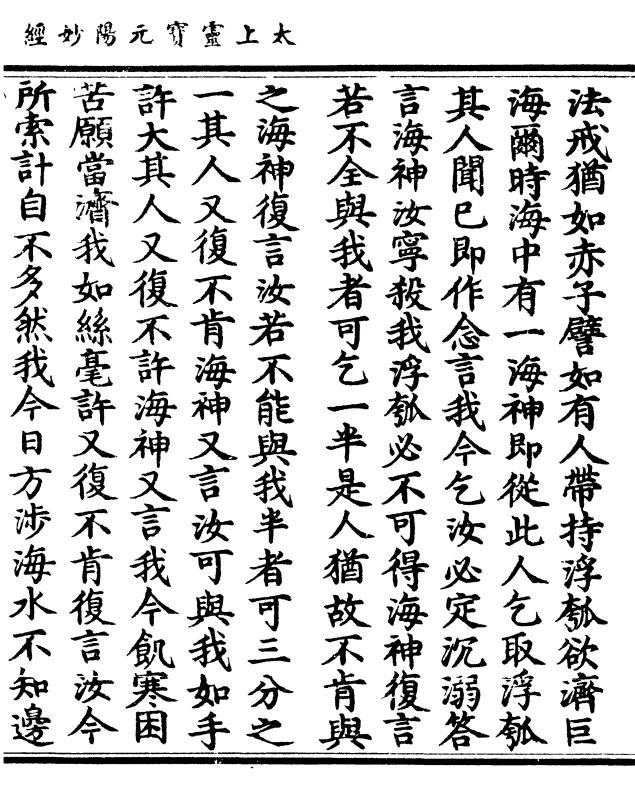 太上靈寶元陽妙經
法戒猶如赤子譬如有人帶持浮瓠欲濟巨
海爾時海中有一海神即從此人乞取浮瓠
其人聞已即作念言我今乞汝必定沉溺答
言海神汝寧殺我浮瓠必不可得海神復言
若不全與我者可乞一半是人猶故不肯與
之海神復言汝若不能與我半者可三分之
一其人又復不肯海神又言汝可與我如手
許大其人又復不許海神又言我今飢寒困
苦願當濟我如絲毫許又復不肯復言汝今
所索計自不多然我今日方涉海水不知邊